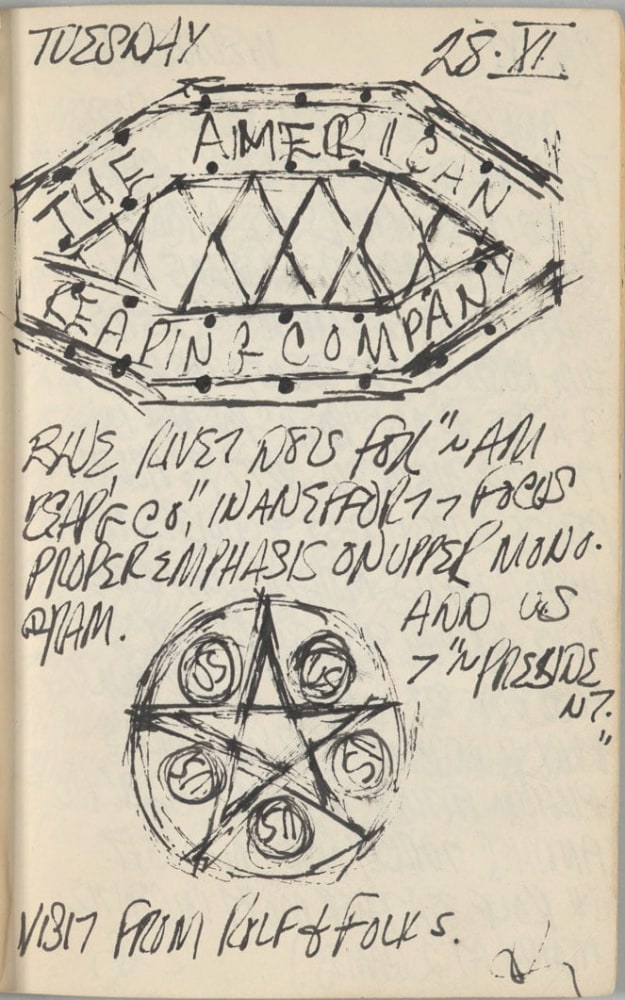 TUESDAY 28·XI.
THE AMERICAN
REAPING COMPANY
BLUE RIVET FOR "AM
REAP'G CO", IN AN EFFORT FOCUS
PROPER EMPHASIS ON UPPER MONO-
GRAM. ADD US
"PRESIDE
NT."
US
US
US
US
US
VISIT FROM ROLF & FOLKS.